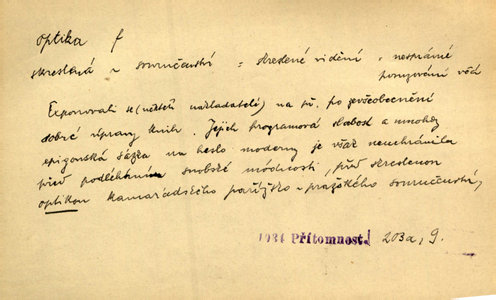 optika f
skreslená ~ souručenství = zkreslené vidění, nesprávné
posuzování věcí
Exponovali se (někteří nakladatelé) na př. po zevšeobecnění
dobré úpravy knih. Jejich programová slabost a mnohdy
epigonská sázka na heslo moderny je však neuchránila
před podléháním snobské módnosti, před zkreslenou
optikou kamarádského pařížsko-pražského souručenství,
1934 Přítomnost. 203a, 9.